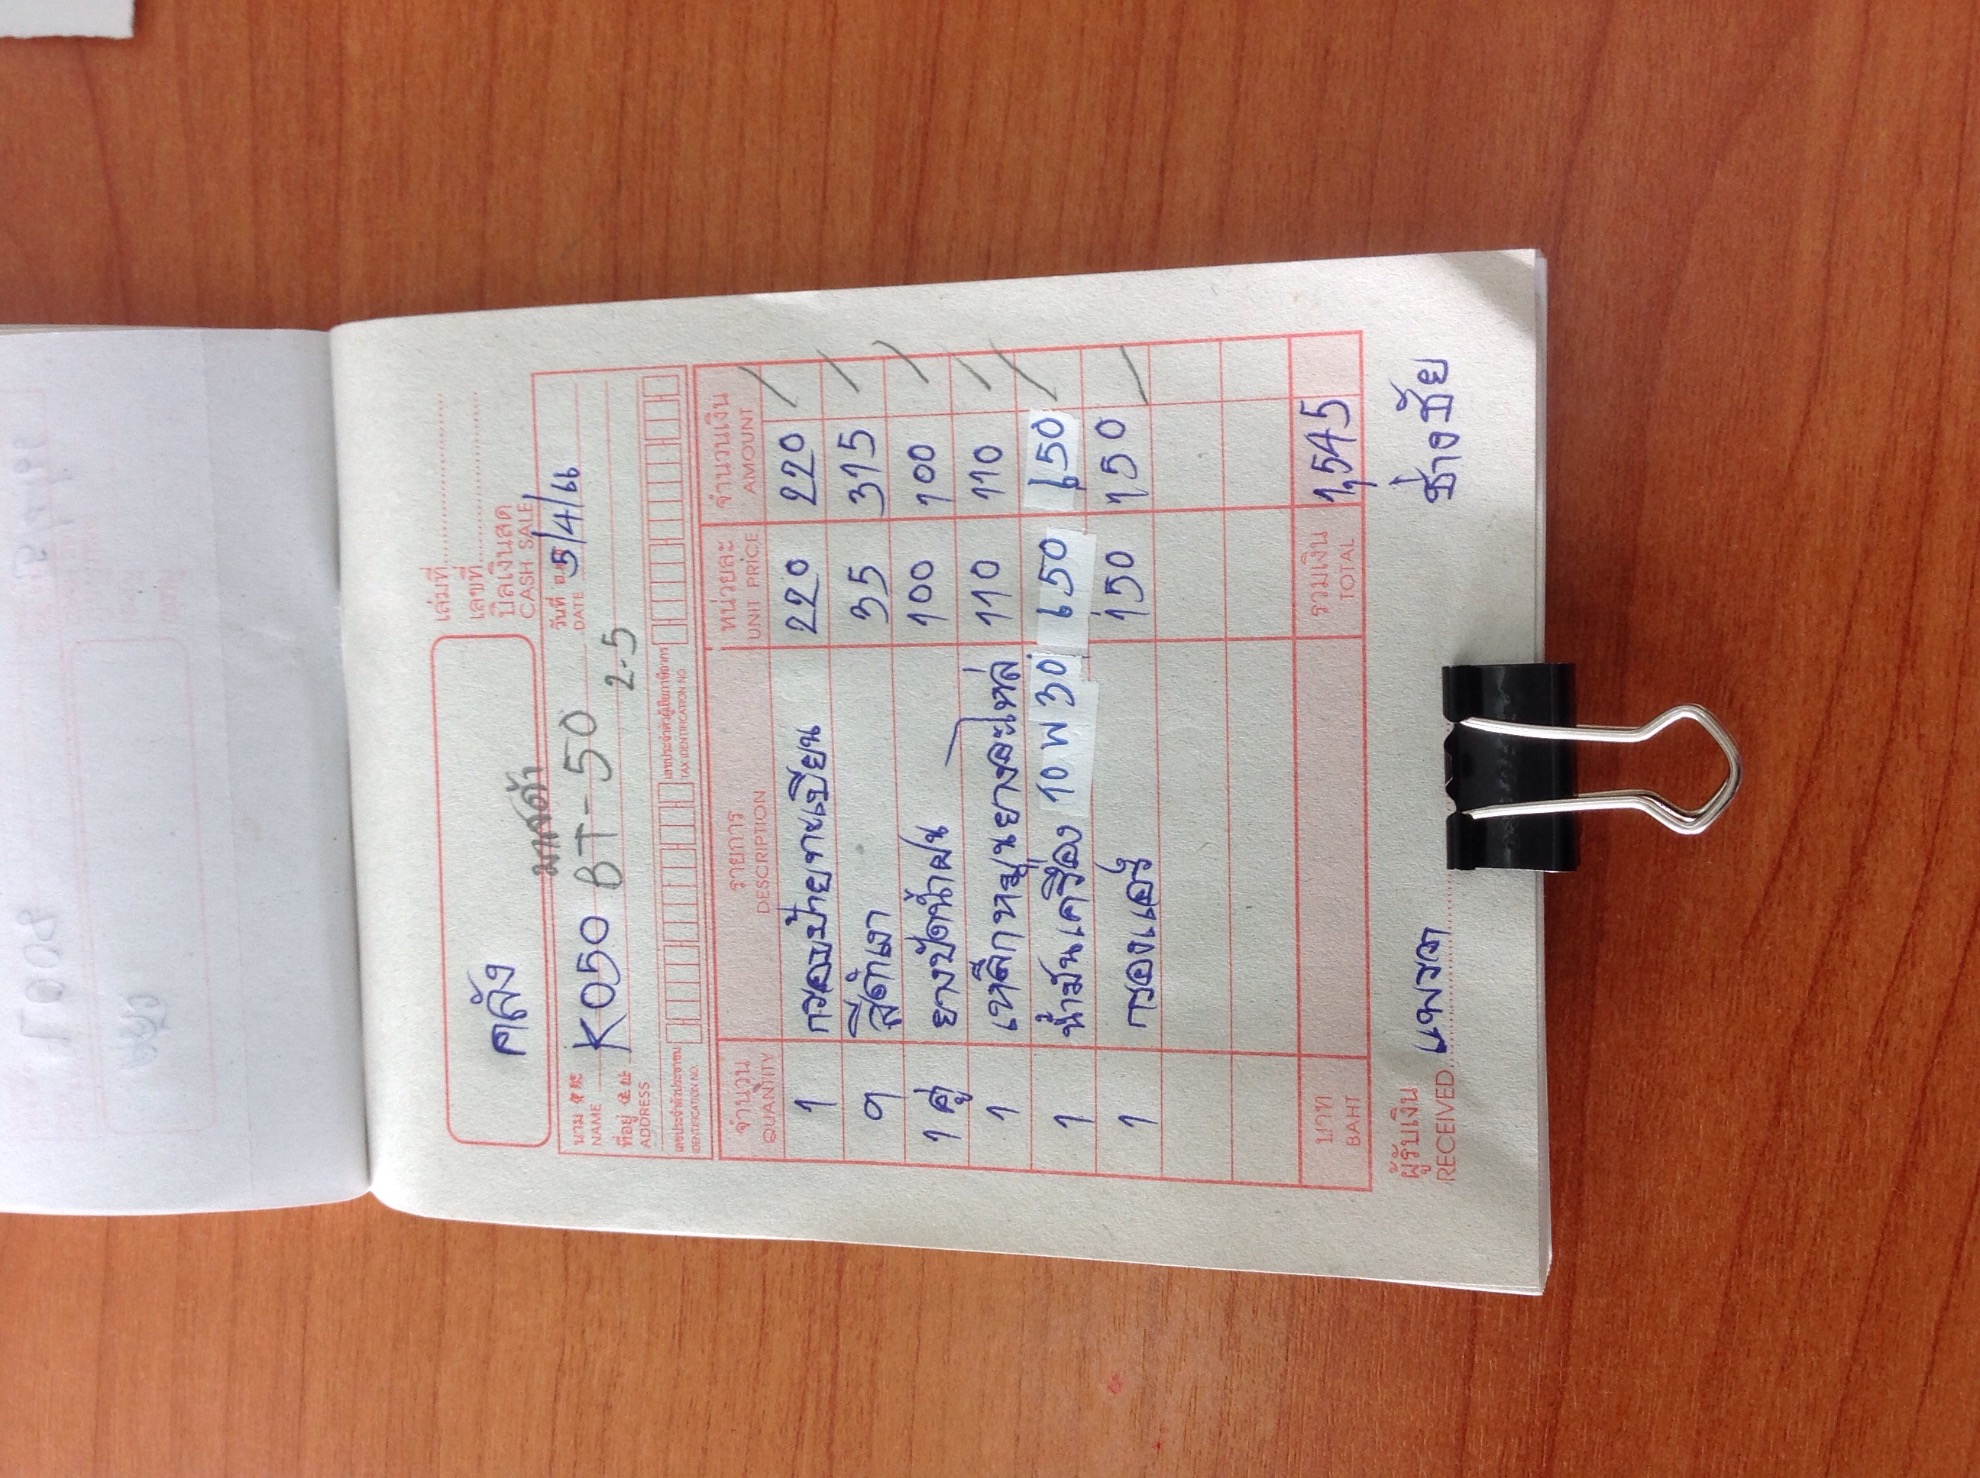 เล่มที่
เลขที่
บิลเงินสด
CASH SALE
คลัง
มาสด้า
นาม KO50 BT-50 วันที่ 5/4/
NAME DATE
ที่อยู่ 2.5
ADDRESS
เลขประจำตัวประชาชน เลขประจำตัวผู้เสียภาษีอากร
IDENTIFICATION NO. TAX IDENTIFICATION NO.
จำนวน รายการ หน่วยละ จำนวนเงิน
QUANTITY DESCRIPTION UNIT PRICE AMOUNT
1 กรอบป้ายทะเบียน 220 220
9 สีดำเงา 35 315
1 คู่ ยางปัดน้ำฝน 100 100
1 เหล็กหมุนยางอะไหล่ 110 110
1 น้ำมันเครื่อง 10W30 650 650
1 กรองแอร์ 150 150
บาท รวมเงิน 1,545
BAHT TOTAL
ผู้รับเงิน แพรวา ช่างชัย
RECEIVED